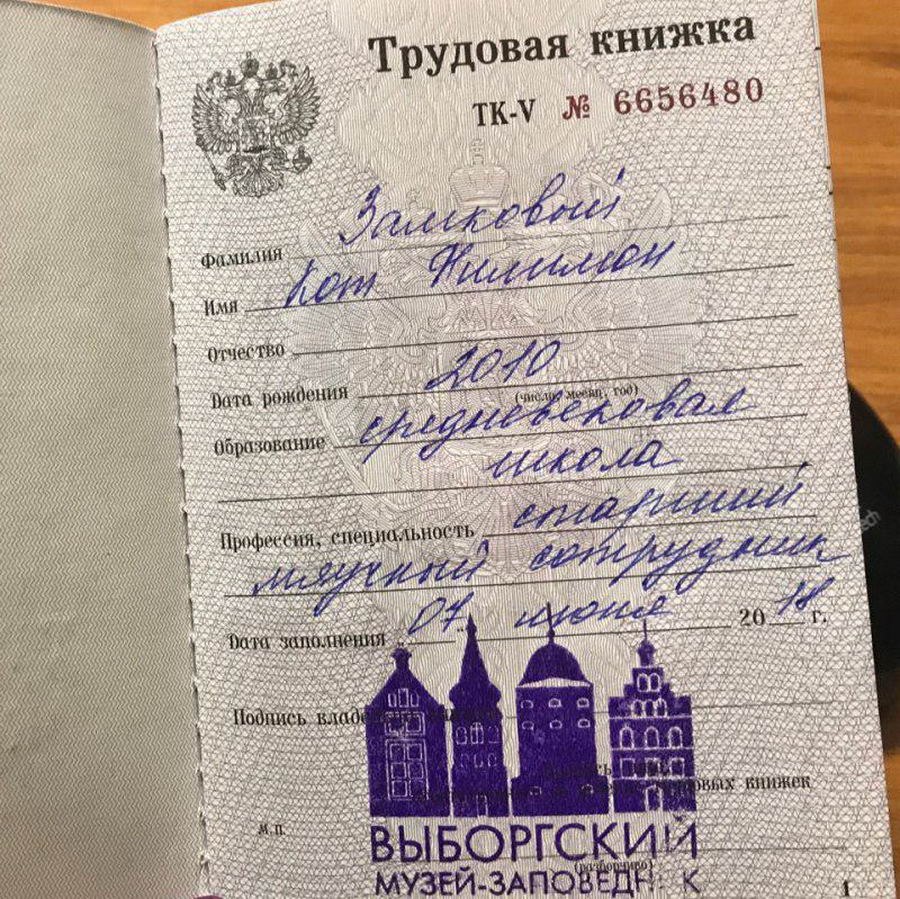 Трудовая книжка
ТК-V № 6656480
Фамилия Замковый
Имя Кот Филимон
Отчество
Дата рождения 2010
(число, месяц, год)
Образование средневековая
школа
Профессия, специальность старший
мяучный сотрудник
Дата заполнения 07 июня 2018 г.
Подпись
книжек
М.П.
ВЫБОРГСКИЙ
(разборчиво)
МУЗЕЙ-ЗАПОВЕДНИК
1